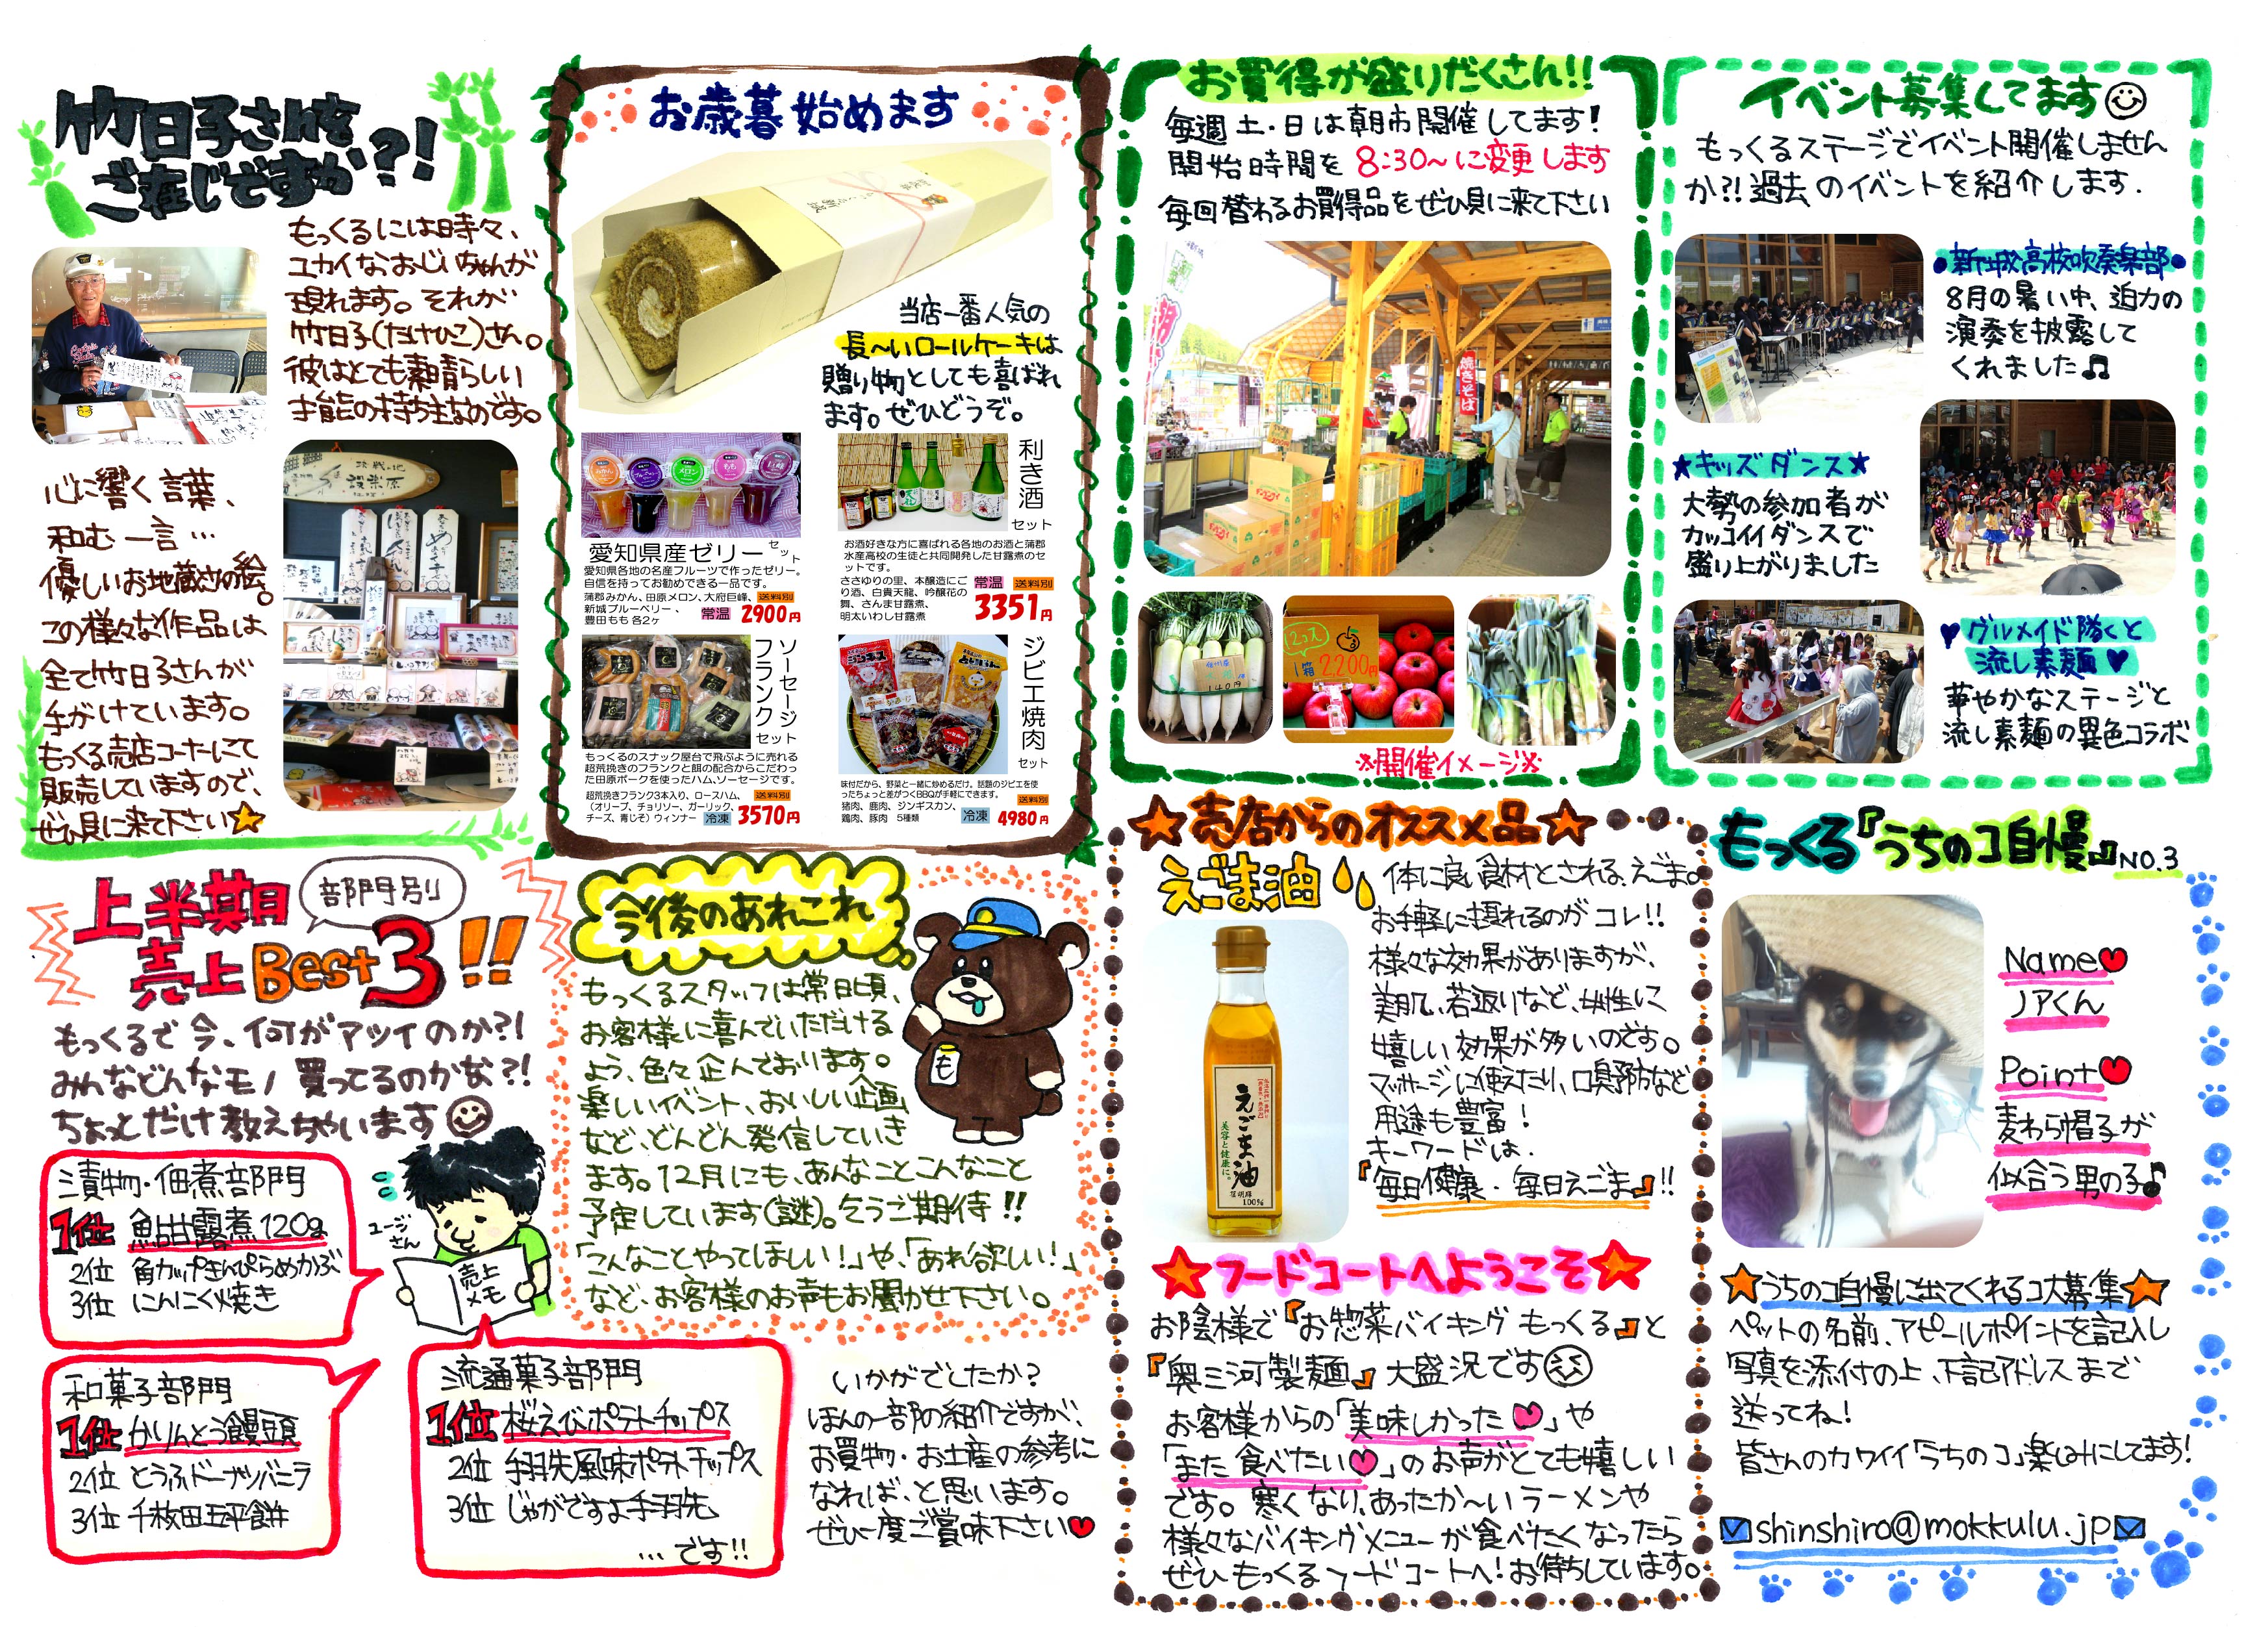 竹日子さんを
ご存じですか?!
もっくるには時々、
ユカイなおじいちゃんが
現れます。それが
竹日子(たけひこ)さん。
彼はとても素晴らしい
才能の持ち主なのです。
心に響く言葉、
和む一言…
優しいお地蔵さの絵。
この様々な作品は
全て竹日子さんが
手がけています。
もっくる売店コーナーにて
販売していますので、
ぜひ見に来て下さい☆
お歳暮始めます
当店一番人気の
長〜いロールケーキは
贈り物としても喜ばれ
ます。ぜひどうぞ。
みかん
ブルーベリー
メロン
もも
巨峰
愛知県産ゼリーセット
愛知県各地の名産フルーツで作ったゼリー。
自信を持ってお勧めできる一品です。
蒲郡みかん、田原メロン、大府巨峰、
新城ブルーベリー、
豊田もも 各2ヶ
送料別
常温 2900円
利き酒
セット
お酒好きな方に喜ばれる各地のお酒と蒲郡
水産高校の生徒と共同開発した甘露煮のセ
ットです。
ささゆりの里、本醸造にご
り酒、白貴天龍、吟醸花の
舞、さんま甘露煮、
明太いわし甘露煮
常温 送料別
3351円
ソーセージ
フランク
セット
もっくるのスナック屋台で飛ぶように売れる
超荒挽きのフランクと餌の配合からこだわっ
た田原ポークを使ったハム、ソーセージです。
超荒挽きフランク3本入り、ロースハム、
(オリーブ、チョリソー、ガーリック、
チーズ、青じそ)ウィンナー
送料別
冷凍 3570円
ジビエ焼肉
セット
味付だから、野菜と一緒に炒めるだけ。話題のジビエを使
ったちょっと差がつくBBQが手軽にできます。
猪肉、鹿肉、ジンギスカン、
鶏肉、豚肉 5種類
送料別
冷凍 4980円
お買得が盛りだくさん!!
毎週土・日は朝市開催してます!
開始時間を8:30〜に変更します
毎回替わるお買得品をぜひ見に来て下さい
焼きそば
140円
12コ入
1箱2,200円
※開催イメージ※
イベント募集してます
もっくるステージでイベント開催しません
か?!過去のイベントを紹介します.
●新城高校吹奏楽部●
8月の暑い中、迫力の
演奏を披露して
くれました♫
★キッズダンス★
大勢の参加者が
カッコイイダンスで
盛り上がりました
♥グルメイド隊くと
流し素麺♥
華やかなステージと
流し素麺の異色コラボ
上半期
部門別
売上Best3!!
もっくるで今、何がアツイのか?!
みんなどんなモノ買ってるのかな?!
ちょっとだけ教えちゃいます
漬物・佃煮部門
1位 鮎甘露煮120g
2位 角カットきんぴらめかぶ
3位 にんにく焼き
ユージさん
売上メモ
和菓子部門
1位 かりんとう饅頭
2位 とうふドーナツバニラ
3位 千枚田五平餅
流通菓子部門
1位 桜えびポテトチップス
2位 手羽先風味ポテトチップス
3位 じゃがですよ手羽先
…です!!
今後のあれこれ
も
もっくるスタッフは常日頃、
お客様に喜んでいただける
よう、色々企んでおります。
楽しいイベント、おいしい企画
など、どんどん発信していき
ます。12月にも、あんなことこんなこと
予定しています(謎)。乞うご期待!!
「こんなことやってほしい!」や、「あれ欲しい!」
など、お客様のお声もお聞かせ下さい。
いかがでしたか?
ほんの一部の紹介ですが、
お買物・お土産の参考に
なれば、と思います。
ぜひ一度ご賞味下さい♥
★売店からのオススメ品★
えごま油
体に良い食材とされる、えごま。
お手軽に摂れるのがコレ!!
様々な効果がありますが、
美肌、若返りなど、女性に
嬉しい効果が多いのです。
マッサージに使えたり、口臭予防など
用途も豊富!
キーワードは、
『毎日健康・毎日えごま』!!
えごま油
美容と健康に。
100%
★フードコートへようこそ★
お陰様で『お惣菜バイキング もっくる』と
『奥三河製麺』大盛況です
お客様からの「美味しかった♥」や
「また食べたい♥」のお声がとても嬉しい
です。寒くなり、あったか〜いラーメンや
様々なバイキングメニューが食べたくなったら
ぜひもっくるフードコートへ!お待ちしています。
もっくる『うちのコ自慢』NO.3
Name♥
ノアくん
Point♥
麦わら帽子が
似合う男の子♪
★うちのコ自慢に出てくれるコ大募集★
ペットの名前、アピールポイントを記入し
写真を添付の上、下記アドレスまで
送ってね!
皆さんのカワイイ「うちのコ」楽しみにしてます!
shinshiro@mokkulu.jp